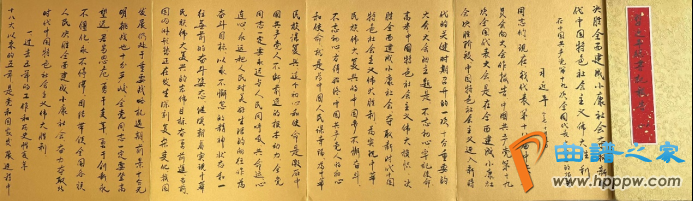 决胜全面建成小康社会 夺取新时
代中国特色社会主义伟大胜利
在中国共产党第十九次全国代表大会上的报告
习近平
同志们 现在我代表第十八届中央委
员会向大会作报告 中国共产党第十九
次全国代表大会是在全面建成小康社
会决胜阶段中国特色社会主义进入新时
代的关键时期召开的一次十分重要的
大会 大会的主题是不忘初心牢记使命
高举中国特色社会主义伟大旗帜 决
胜全面建成小康社会夺取新时代中国
特色社会主义伟大胜利为实现中华
民族伟大复兴的中国梦不懈奋斗
不忘初心方得始终中国共产党人的初心
和使命就是为中国人民谋幸福为中华
民族谋复兴这个初心和使命是激励中
国共产党人不断前进的根本动力全党
同志一定要永远与人民同呼吸共命运心
连心永远把人民对美好生活的向往作为
奋斗目标以永不懈怠的精神状态和一
往无前的奋斗姿态继续朝着实现中华
民族伟大复兴的宏伟目标奋勇前进当前
国内外形势正在发生深刻复杂变化我国
发展仍处于重要战略机遇期前景十分光
明挑战也十分严峻全党同志一定要登高
望远居安思危勇于变革勇于创新永
不僵化永不停滞团结带领全国各族
人民决胜全面建成小康社会奋力夺取新
时代中国特色社会主义伟大胜利
一过去五年的工作和历史性变革
十八大以来的五年是党和国家发展进程中
曲谱之家
www.hpppw.com